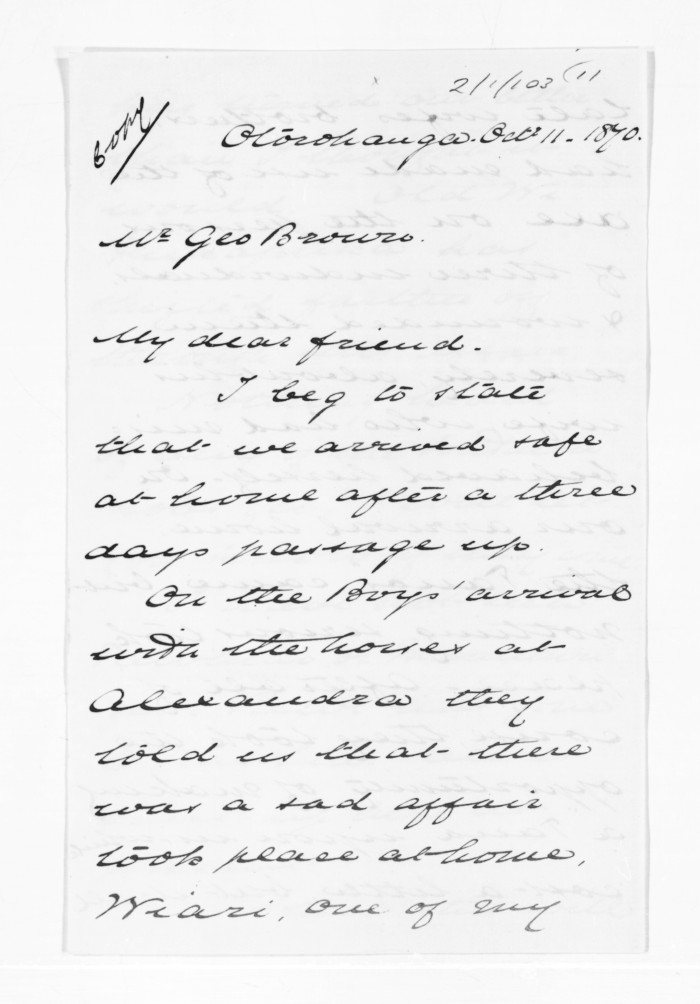 2/1/103 (11
Copy
Otorohanga. Octr 11. 1870.
Mr Geo Brown.
My dear friend.
I beg to state
that we arrived safe
at home after a three
days passage up.
On the Boys' arrival
with the horses at
Alexandra they
told us that there
was a sad affair
took place at home,
Wiari, one of my